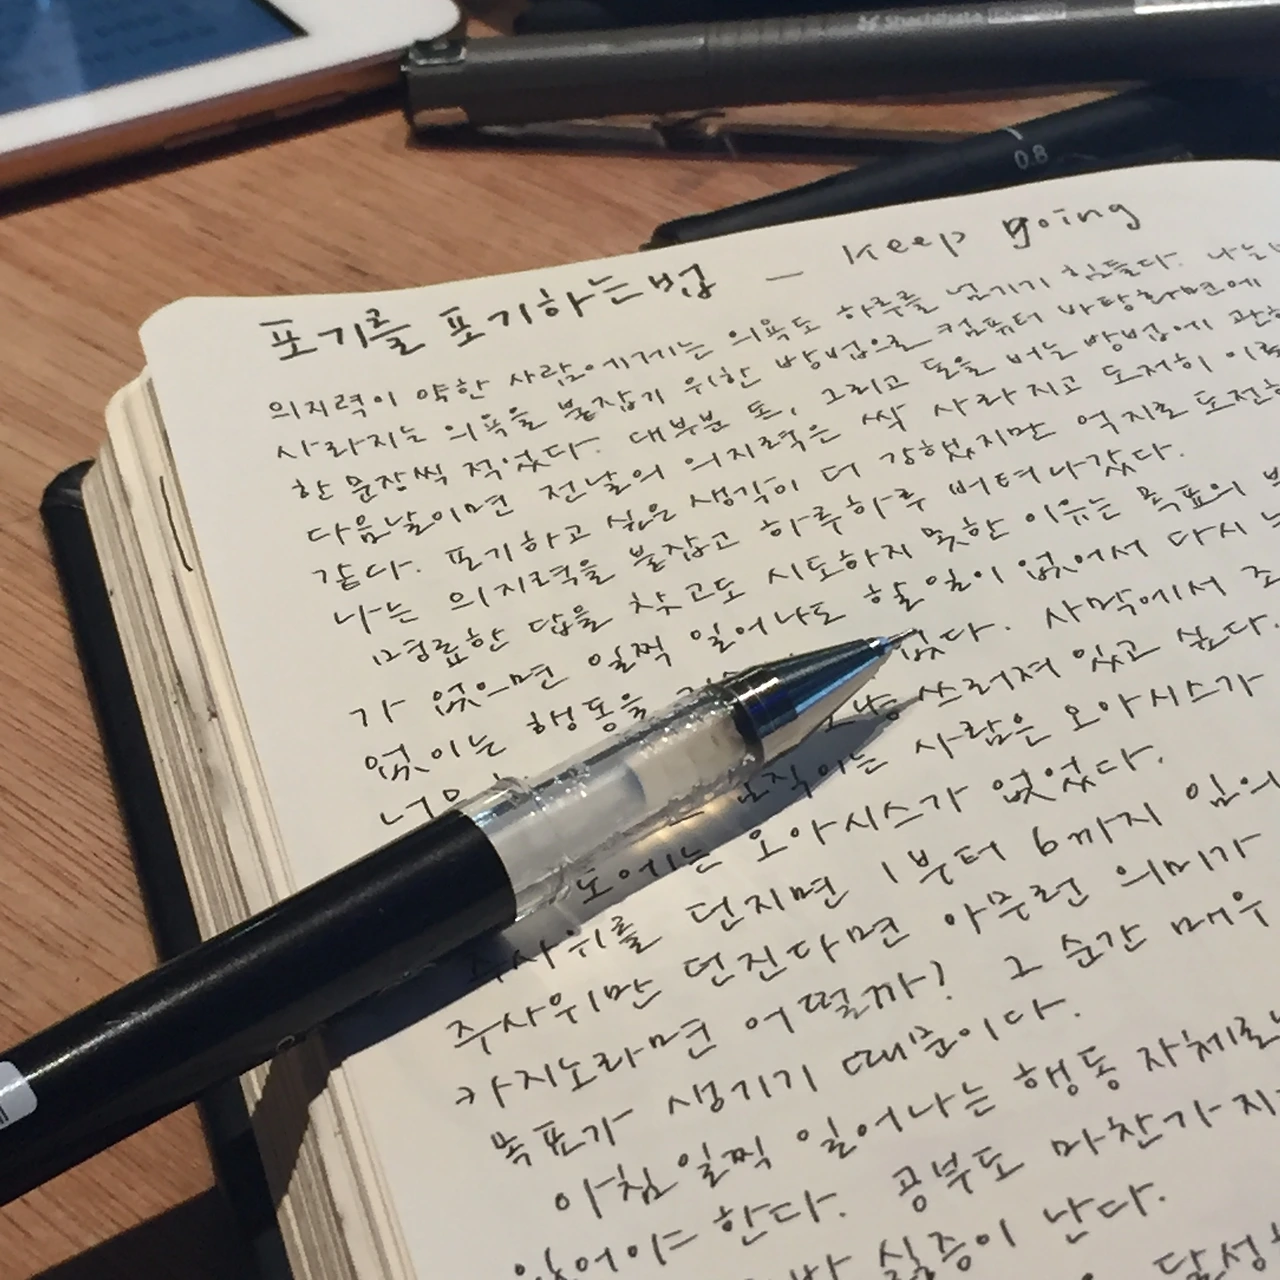 Shachihata
0.8
포기를 포기하는 법 — keep going
의지력이 약한 사람에게는 의욕도 하루를 넘기기 힘들다. 나는
사라지는 의욕을 붙잡기 위한 방법으로 컴퓨터 바탕화면에
한 문장씩 적었다. 대부분 돈, 그리고 돈을 버는 방법에 관한
다음날이면 전날의 의지력은 싹 사라지고 도저히
같다. 포기하고 싶은 생각이 더 강했지만 억지로
나는 의지력을 붙잡고 하루하루 버텨나갔다.
명료한 답을 찾고도 시도하지 못한 이유는 목표의
가 없으면 일찍 일어나도 할 일이 없어서 다시
없이는 행동을 없다. 사막에서
쓰러져 있고 싶다.
움직이는 사람은 오아시스가
오아시스가 없었다.
주사위를 던지면 1부터 6까지 임의
주사위만 던진다면 아무런 의미가
카지노라면 어떨까? 그 순간 매우
목표가 생기기 때문이다.
아침 일찍 일어나는 행동 자체로는
있어야 한다. 공부도 마찬가지
싫증이 난다.
달성